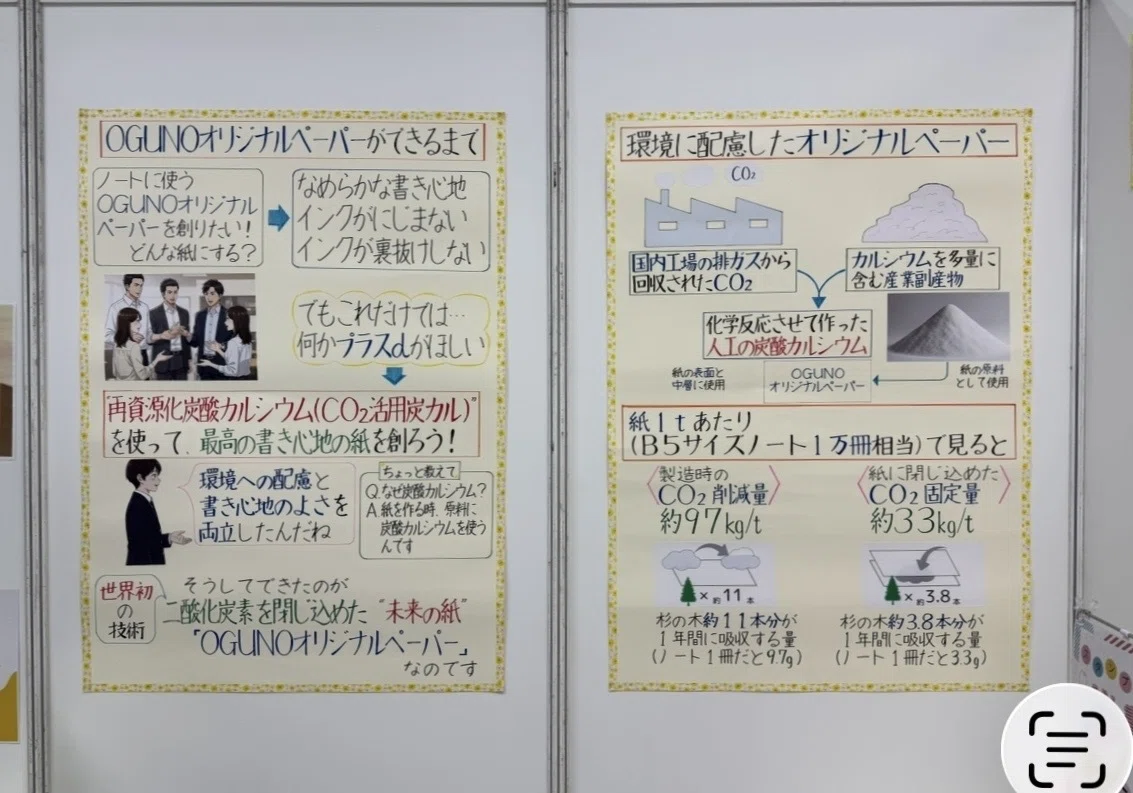 OGUNOオリジナルペーパーができるまで
ノートに使う
OGUNOオリジナル
ペーパーを創りたい!
どんな紙にする?
なめらかな書き心地
インクがにじまない
インクが裏抜けしない
でもこれだけでは…
何かプラスαがほしい
"再資源化炭酸カルシウム(CO₂活用炭カル)"
を使って、最高の書き心地の紙を創ろう!
環境への配慮と
書き心地のよさを
両立したんだね
ちょっと教えて
Q.なぜ炭酸カルシウム?
A.紙を作る時、原料に
炭酸カルシウムを使う
んです
世界初
の
技術
そうしてできたのが
二酸化炭素を閉じ込めた "未来の紙"
「OGUNOオリジナルペーパー」
なのです
環境に配慮したオリジナルペーパー
CO₂
国内工場の排ガスから
回収されたCO₂
カルシウムを多量に
含む産業副産物
化学反応させて作った
人工の炭酸カルシウム
紙の表面と
中層に使用
OGUNO
オリジナルペーパー
紙の原料
として使用
紙1tあたり
(B5サイズノート1万冊相当)で見ると
製造時の
CO₂削減量
約97kg/t
×約11本
杉の木約11本分が
1年間に吸収する量
(ノート1冊だと9.7g)
紙に閉じ込めた
CO₂固定量
約33kg/t
×約3.8本
杉の木約3.8本分が
1年間に吸収する量
(ノート1冊だと3.3g)
スタンプ